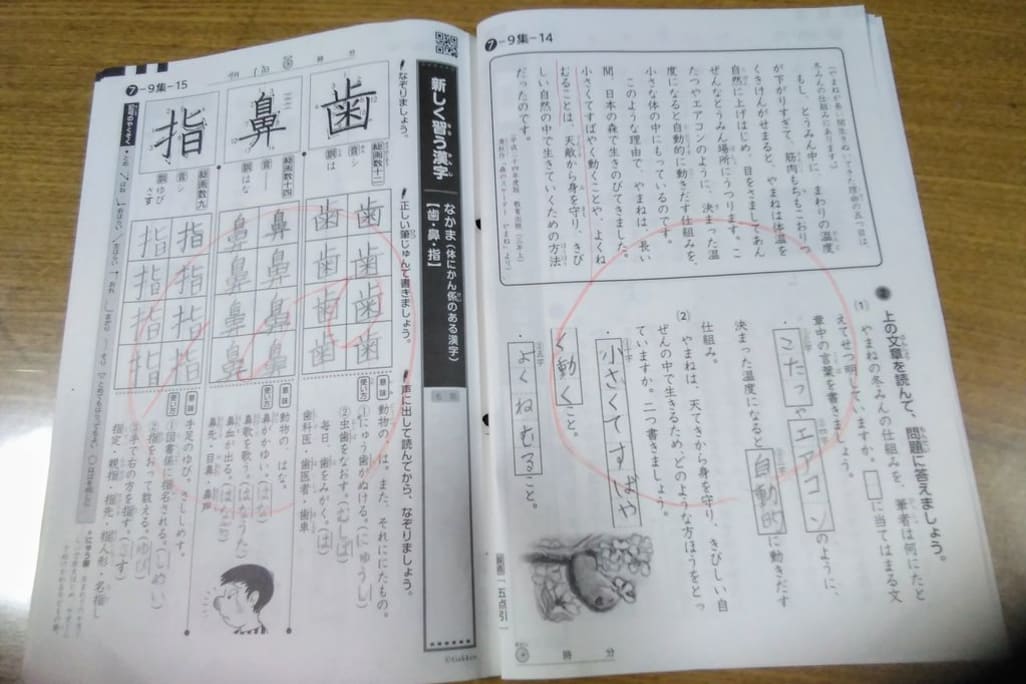 ❼-9集-14
もし、とうみん中に、まわりの温度
が下がりすぎて、筋肉もちもこおりつ
くきけんがせまると、やまねは体温を
自然に上げはじめ、目をさましてあん
ぜんなとうみん場所にうつります。こ
たつやエアコンのように、決まった温
度になると自動的に動きだす仕組みを、
小さな体の中にもっているのです。
このような理由で、やまねは、長い
間、日本の森で生きのびてきました。
小さくてすばやく動くことや、よくね
むることは、天敵から身を守り、きび
しい自然の中で生きていくための方法
だったのです。
上の文章を読んで、問題に答えましょう。
(1) やまねの冬みんの仕組みを、筆者は何にたと
えてせつ明していますか。□に当てはまる文
章中の言葉を書きましょう。
こたつやエアコンのように、
決まった温度になると自動的に動きだす
仕組み。
(2) やまねは、天てきから身を守り、きびしい自
ぜんの中で生きるため、どのような方ほうをとっ
ていますか。二つ書きましょう。
・小さくてすばや
く動くこと。
・よくねむること。
時 分
❼-9集-15
新しく習う漢字
なかま(体にかん係のある漢字)
【歯・鼻・指】
名前
時 分
なぞりましょう。
正しい筆じゅんで書きましょう。
声に出して読んでから、なぞりましょう。
歯
総画数十二
音 シ
訓 は
歯 歯
歯 歯
歯 歯
歯 歯
意味 動物の、は。また、それににたもの。
使い方 ①にゅう歯がぬける。(にゅうし)
②虫歯をなおす。(むしば)
毎日、歯をみがく。(は)
歯科医・歯医者・歯車
鼻
総画数十四
訓 はな
鼻 鼻
鼻 鼻
鼻 鼻
鼻 鼻
意味 動物の、はな。
使い方 鼻がかゆい。(はな)
鼻歌を歌う。(はなうた)
鼻血が出る。(はなぢ)
鼻先・目鼻・鼻声
指
総画数九
音 シ
訓 ゆび
さす
指 指
指 指
指 指
指 指
意味 手足のゆび。さししめす。
使い方 ①図書係に指名される。(しめい)
②指をおって数える。(ゆび)
③手で右の方を指す。(さす)
指定・親指・指先・指人形・名指し
©Gakken